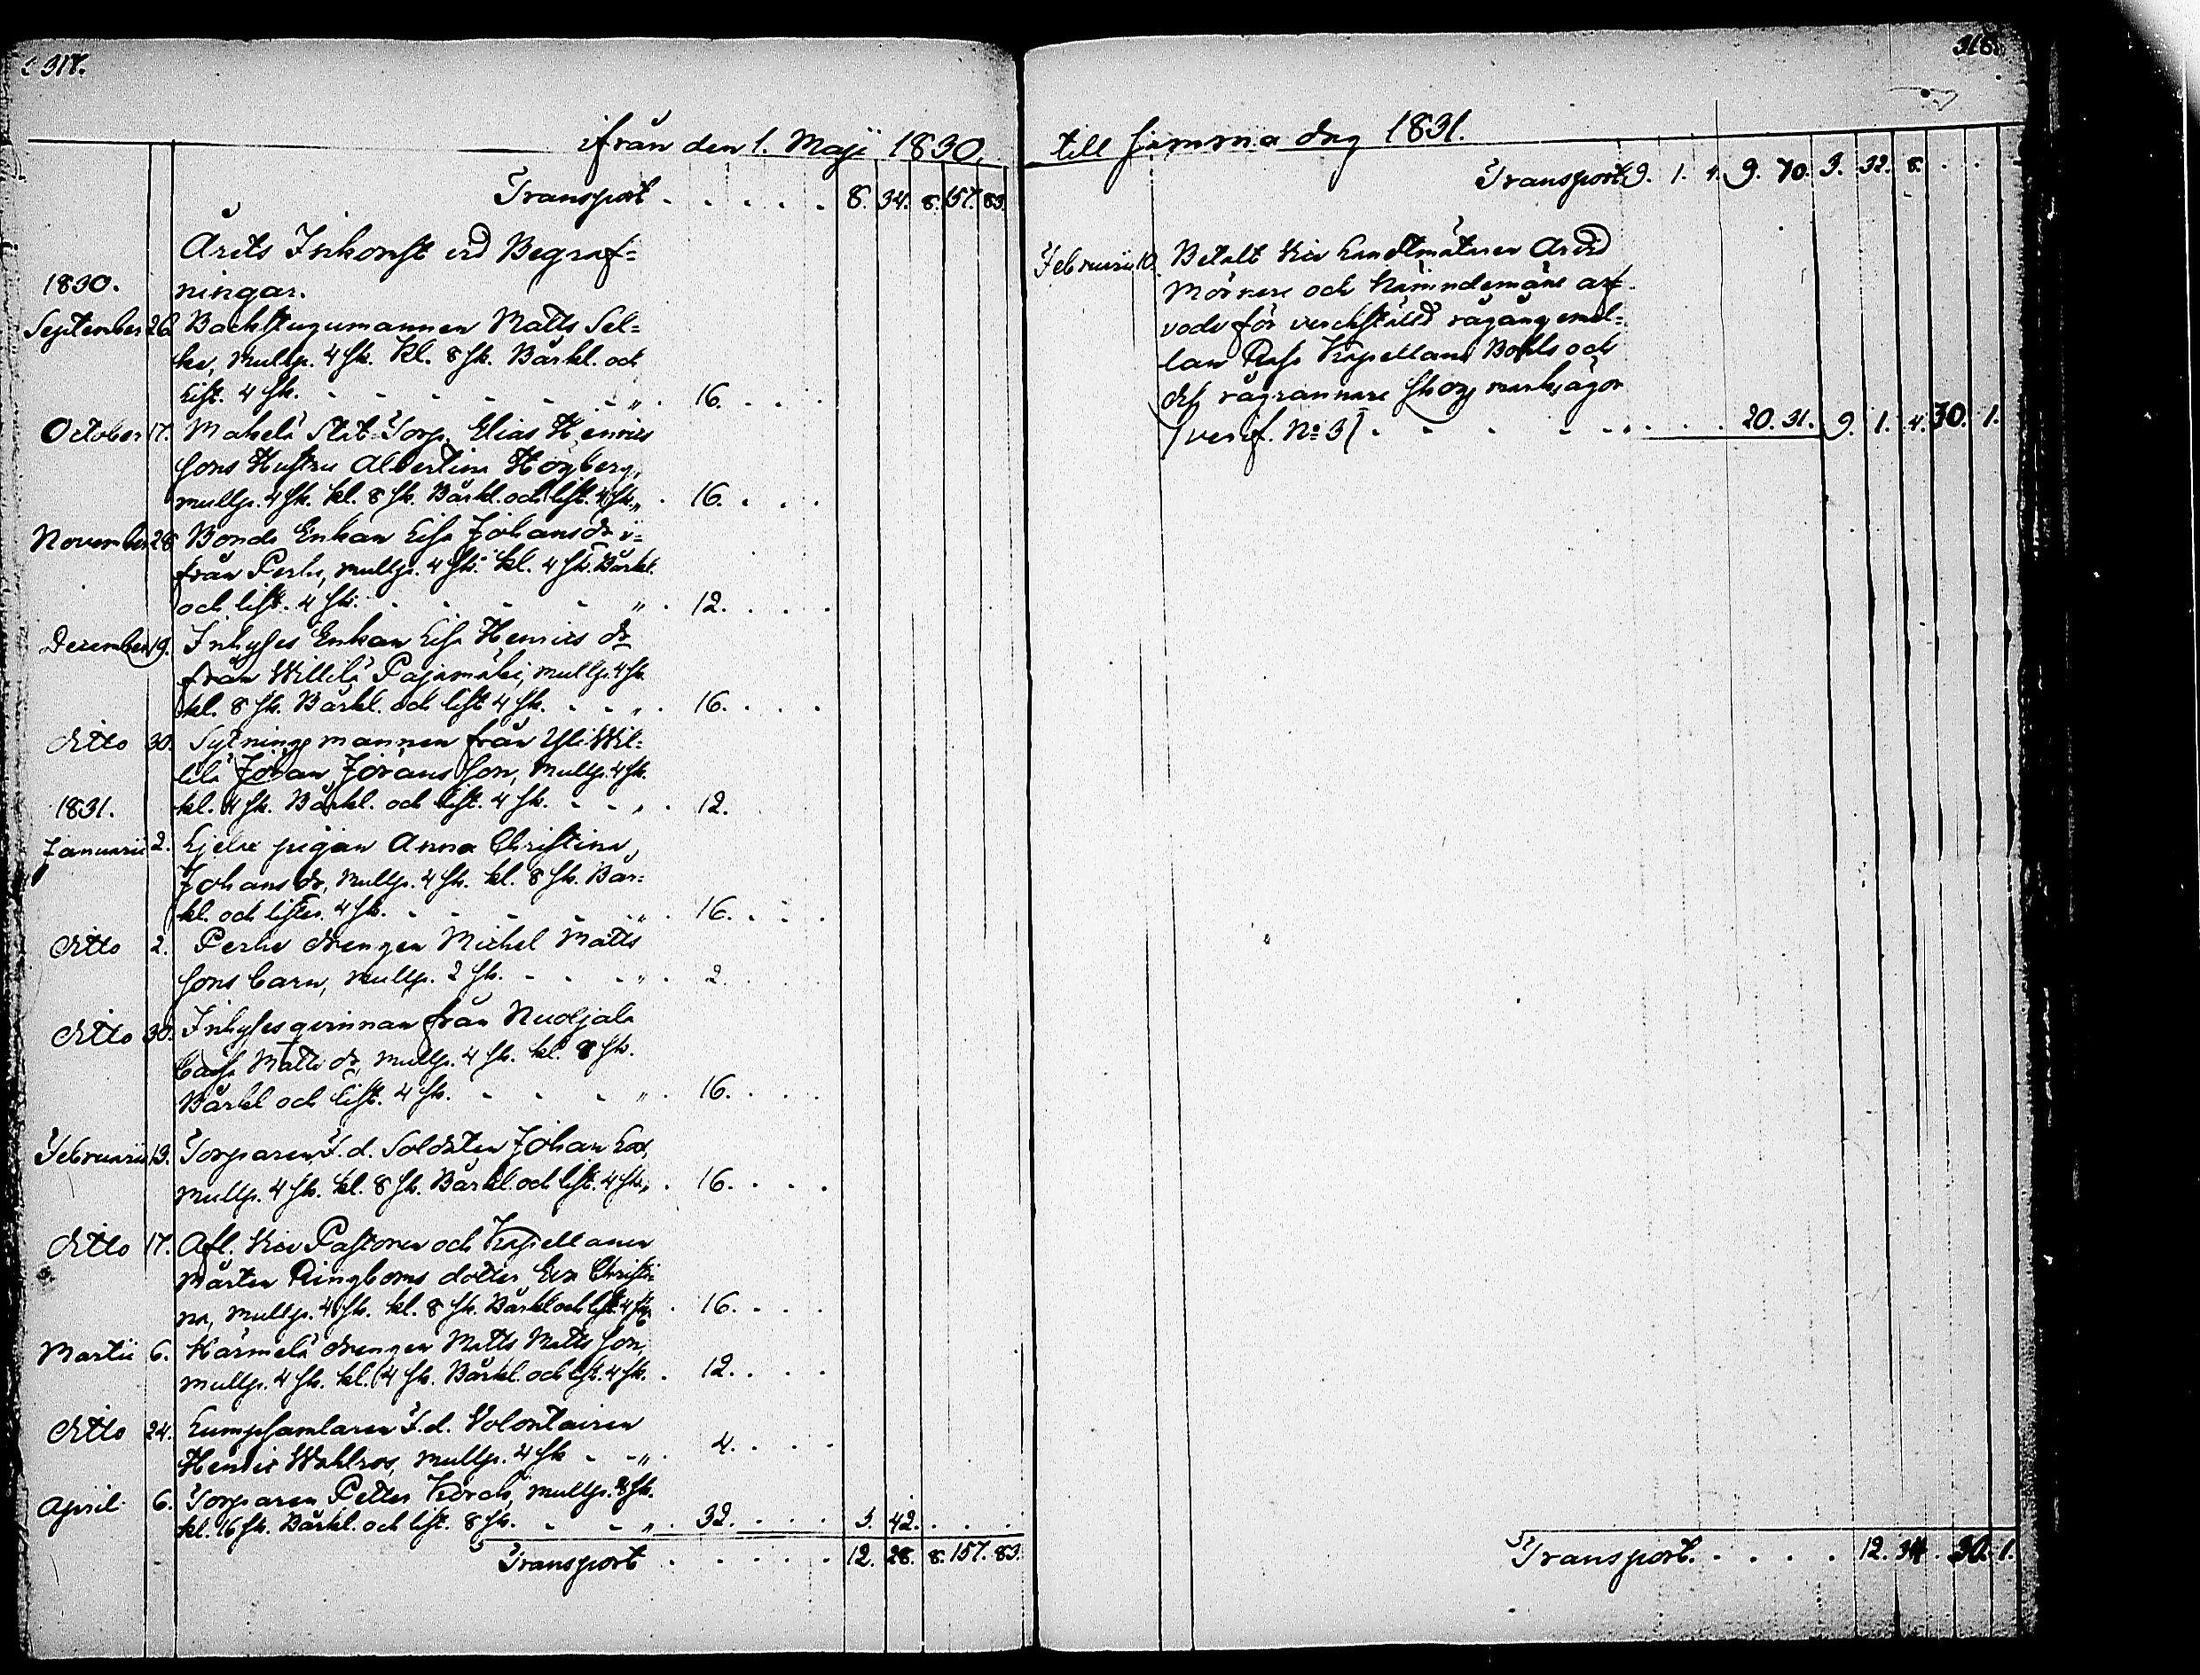 317.
ifrån den 1. Maji 1830.
Transport . . . . . 8. 34. 8. 157. 83.
Årets Inkomst vid Begraf=
1830. ningar.
September 26. Backstugumannen Matts Sel=
ke, mullp. 4 sk. kl. 8 sk. Bårkl. och
list. 4 sk. - - - - - - „ . 16. . . .
October 17. Makelä Stat Torp. Elias Henrics
sons Hustru Albertina Högberg,
mullp. 4 sk. kl. 8 sk. Bårkl. och list. 4 sk. „ . 16. . . .
November 28. Bonde Enkan Lisa Johansdr i=
från Perhe, mullp. 4 sk. kl. 4 sk. Bårkl.
och list. 4 sk. - - - - „ . 12. . . .
December 19. Inhyses Enkan Lisa Henrics dr
från Willilä Pajamäki, mullp. 4 sk.
kl. 8 sk. Bårkl. och list 4 sk. - - „ . 16. . . .
ditto 30. Sytningsmannen från Yli Wil=
lilä Johan Jöransson, mullp. 4 sk.
1831. kl. 4 sk. Bårkl. och list. 4 sk. - - „ . 12.
Januarii 2. pigan Anna Christina
Johansdr, mullp. 4 sk. kl. 8 sk. Bår=
kl. och listen. 4 sk. - - - - „ . 16. . . .
ditto 2. Perhe drengen Michel Matts
sons barn, mullp. 2 sk. - - - „ . 2. . . .
ditto 30. Inhysesqvinnan från Nuojala
Caisa Matts dr, mullp. 4 sk. kl. 8 sk.
Bårkl och list. 4 sk. - - - „ . 16. . . .
Februarii 13. Torparen F.d. Soldaten Johan
mullp. 4 sk. kl. 8 sk. Bårkl. och list. 4 sk. „ . 16. . . .
ditto 17. Afl. Vice Pastoren och Kapellanen
Mårten Ringboms dotter Eva Christi=
na, mullp. 4 sk. kl. 8 sk. Bårkl och list. 4 sk. . 16. . . .
Martii 6. Härmelä drengen Matts Mattsson,
mullp. 4 sk. kl. 4 sk. Bårkl. och list. 4 sk. . 12. . . .
ditto 24. Lumpsamlaren F.d. Volontairen
Henric Wahlros, mullp. 4 sk - - „ . 4. . . .
April 6. Torparen Petter mullp. 8 sk.
kl. 16 sk. Bårkl. och list. 8 sk. - - „ . 32. . . . 3. 42. . . .
Transport . . . . . 12. 28. 8. 157. 83.
318.
till samma dag 1831.
Transport 9. 1. 4. 9. 70. 3. 32. 8. . .
Februarii 10. Betalt Vice Landtmätaren Arvid
Mörnere och Nämndemäns arf=
vode för verckstäld rågång emel=
lan Kapellans Bohls och
dess rågrannare skogsmarksägor
/verif. No 3/ - - - - - . . . 20. 31. 9. 1. 4. 30. 1.
Transport. . . . . 12. 34. . 30. 1.